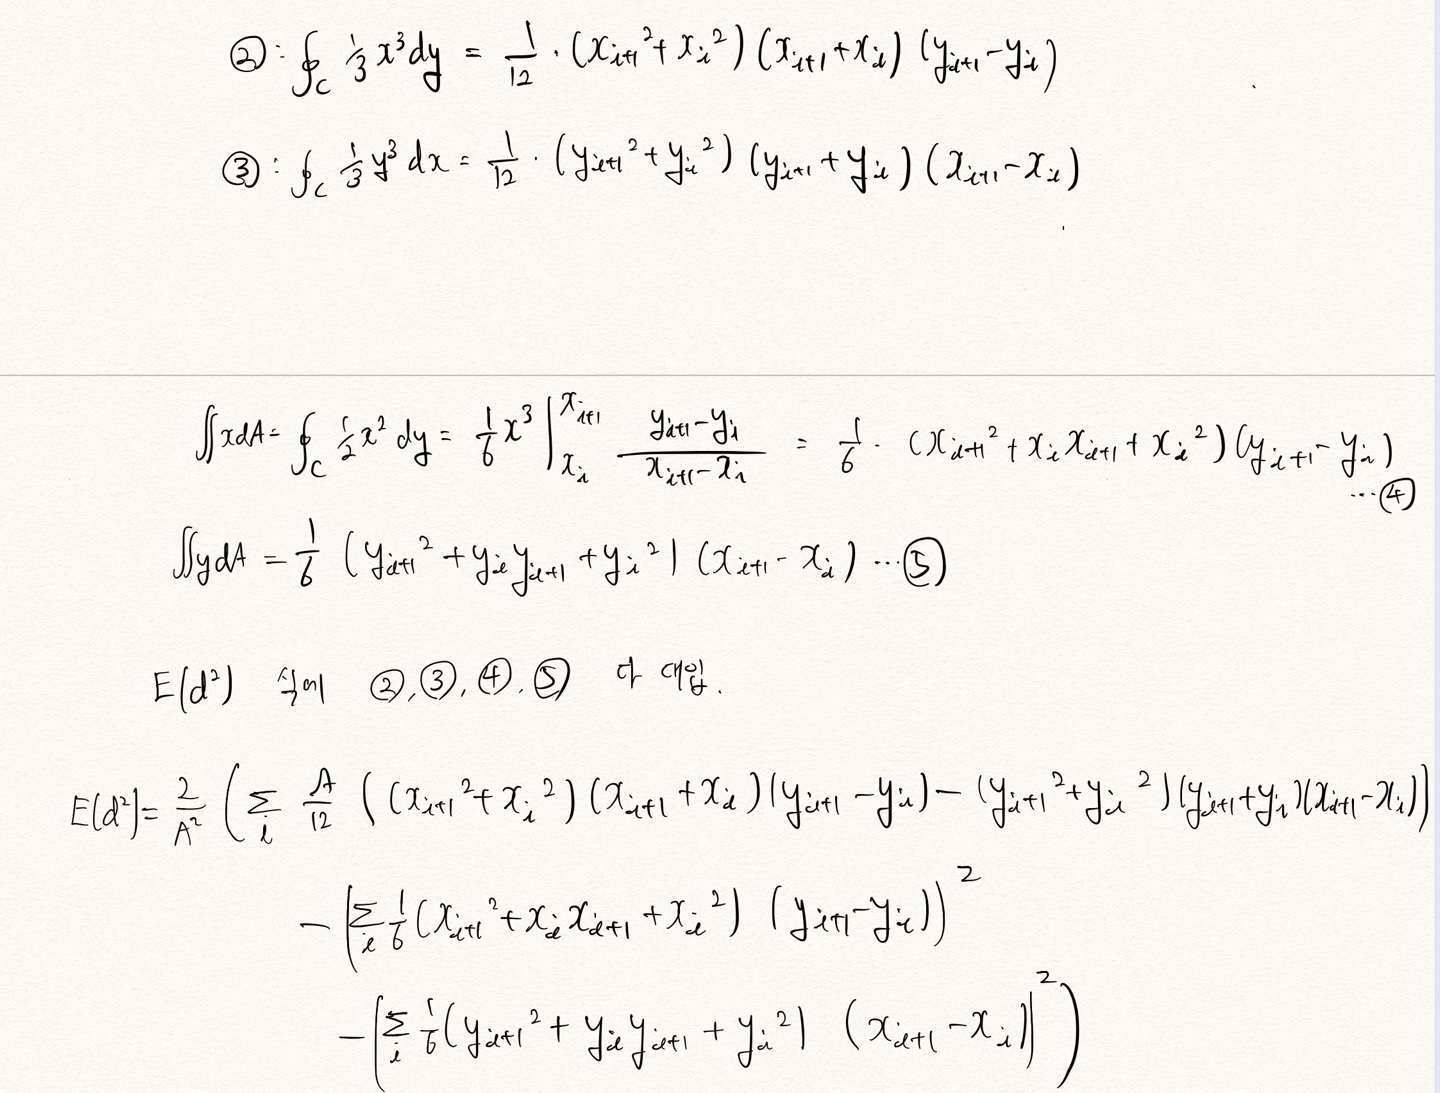 ②: ∮_C 1/3 x³dy = 1/12 · (x_{i+1}² + x_i²)(x_{i+1} + x_i)(y_{i+1} - y_i)
③: ∮_C 1/3 y³ dx = 1/12 · (y_{i+1}² + y_i²)(y_{i+1} + y_i)(x_{i+1} - x_i)
∬xdA = ∮_C 1/2 x² dy = 1/6 x³ |_{x_i}^{x_{i+1}} (y_{i+1} - y_i)/(x_{i+1} - x_i) = 1/6 · (x_{i+1}² + x_i x_{i+1} + x_i²)(y_{i+1} - y_i)
…④
∬ydA = 1/6 (y_{i+1}² + y_i y_{i+1} + y_i²)(x_{i+1} - x_i) …⑤
E(d²) 식에 ②,③,④,⑤ 다 대입.
E(d²) = 2/A² (Σ_i A/12 ((x_{i+1}² + x_i²)(x_{i+1} + x_i)(y_{i+1} - y_i) - (y_{i+1}² + y_i²)(y_{i+1} + y_i)(x_{i+1} - x_i))
- (Σ_i 1/6 (x_{i+1}² + x_i x_{i+1} + x_i²) (y_{i+1} - y_i))²
- (Σ_i 1/6 (y_{i+1}² + y_i y_{i+1} + y_i²) (x_{i+1} - x_i))²)